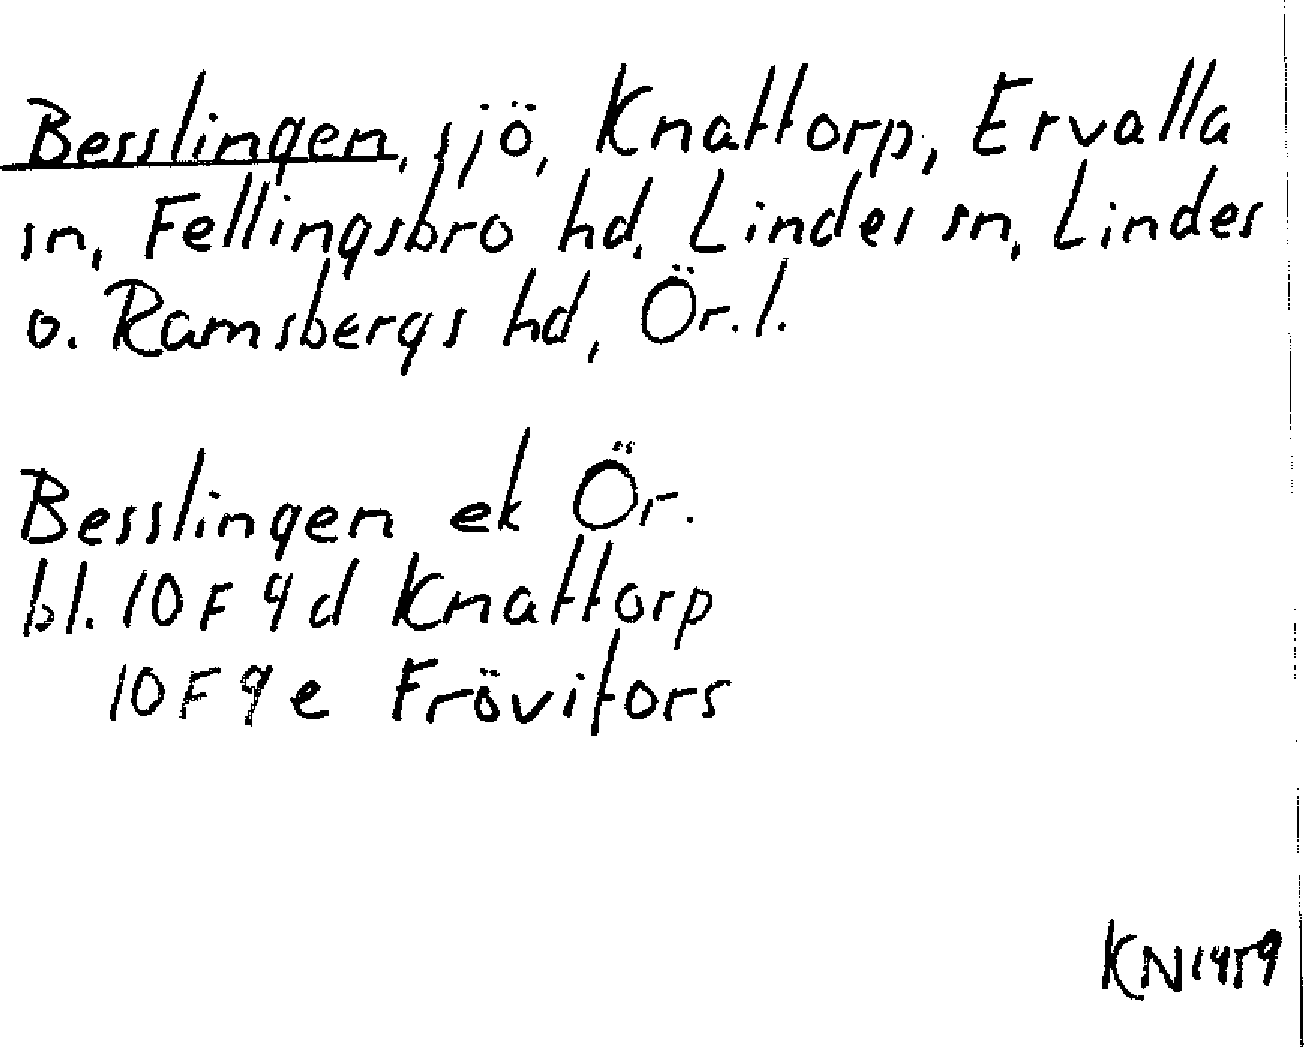 Besslingen, sjö, Knattorp, Ervalla
sn, Fellingsbro hd, Lindes sn, Lindes
o. Ramsbergs hd, Ör. l.
Besslingen ek Ör.
bl. 10F 9d Knattorp
10F 9e Frövifors